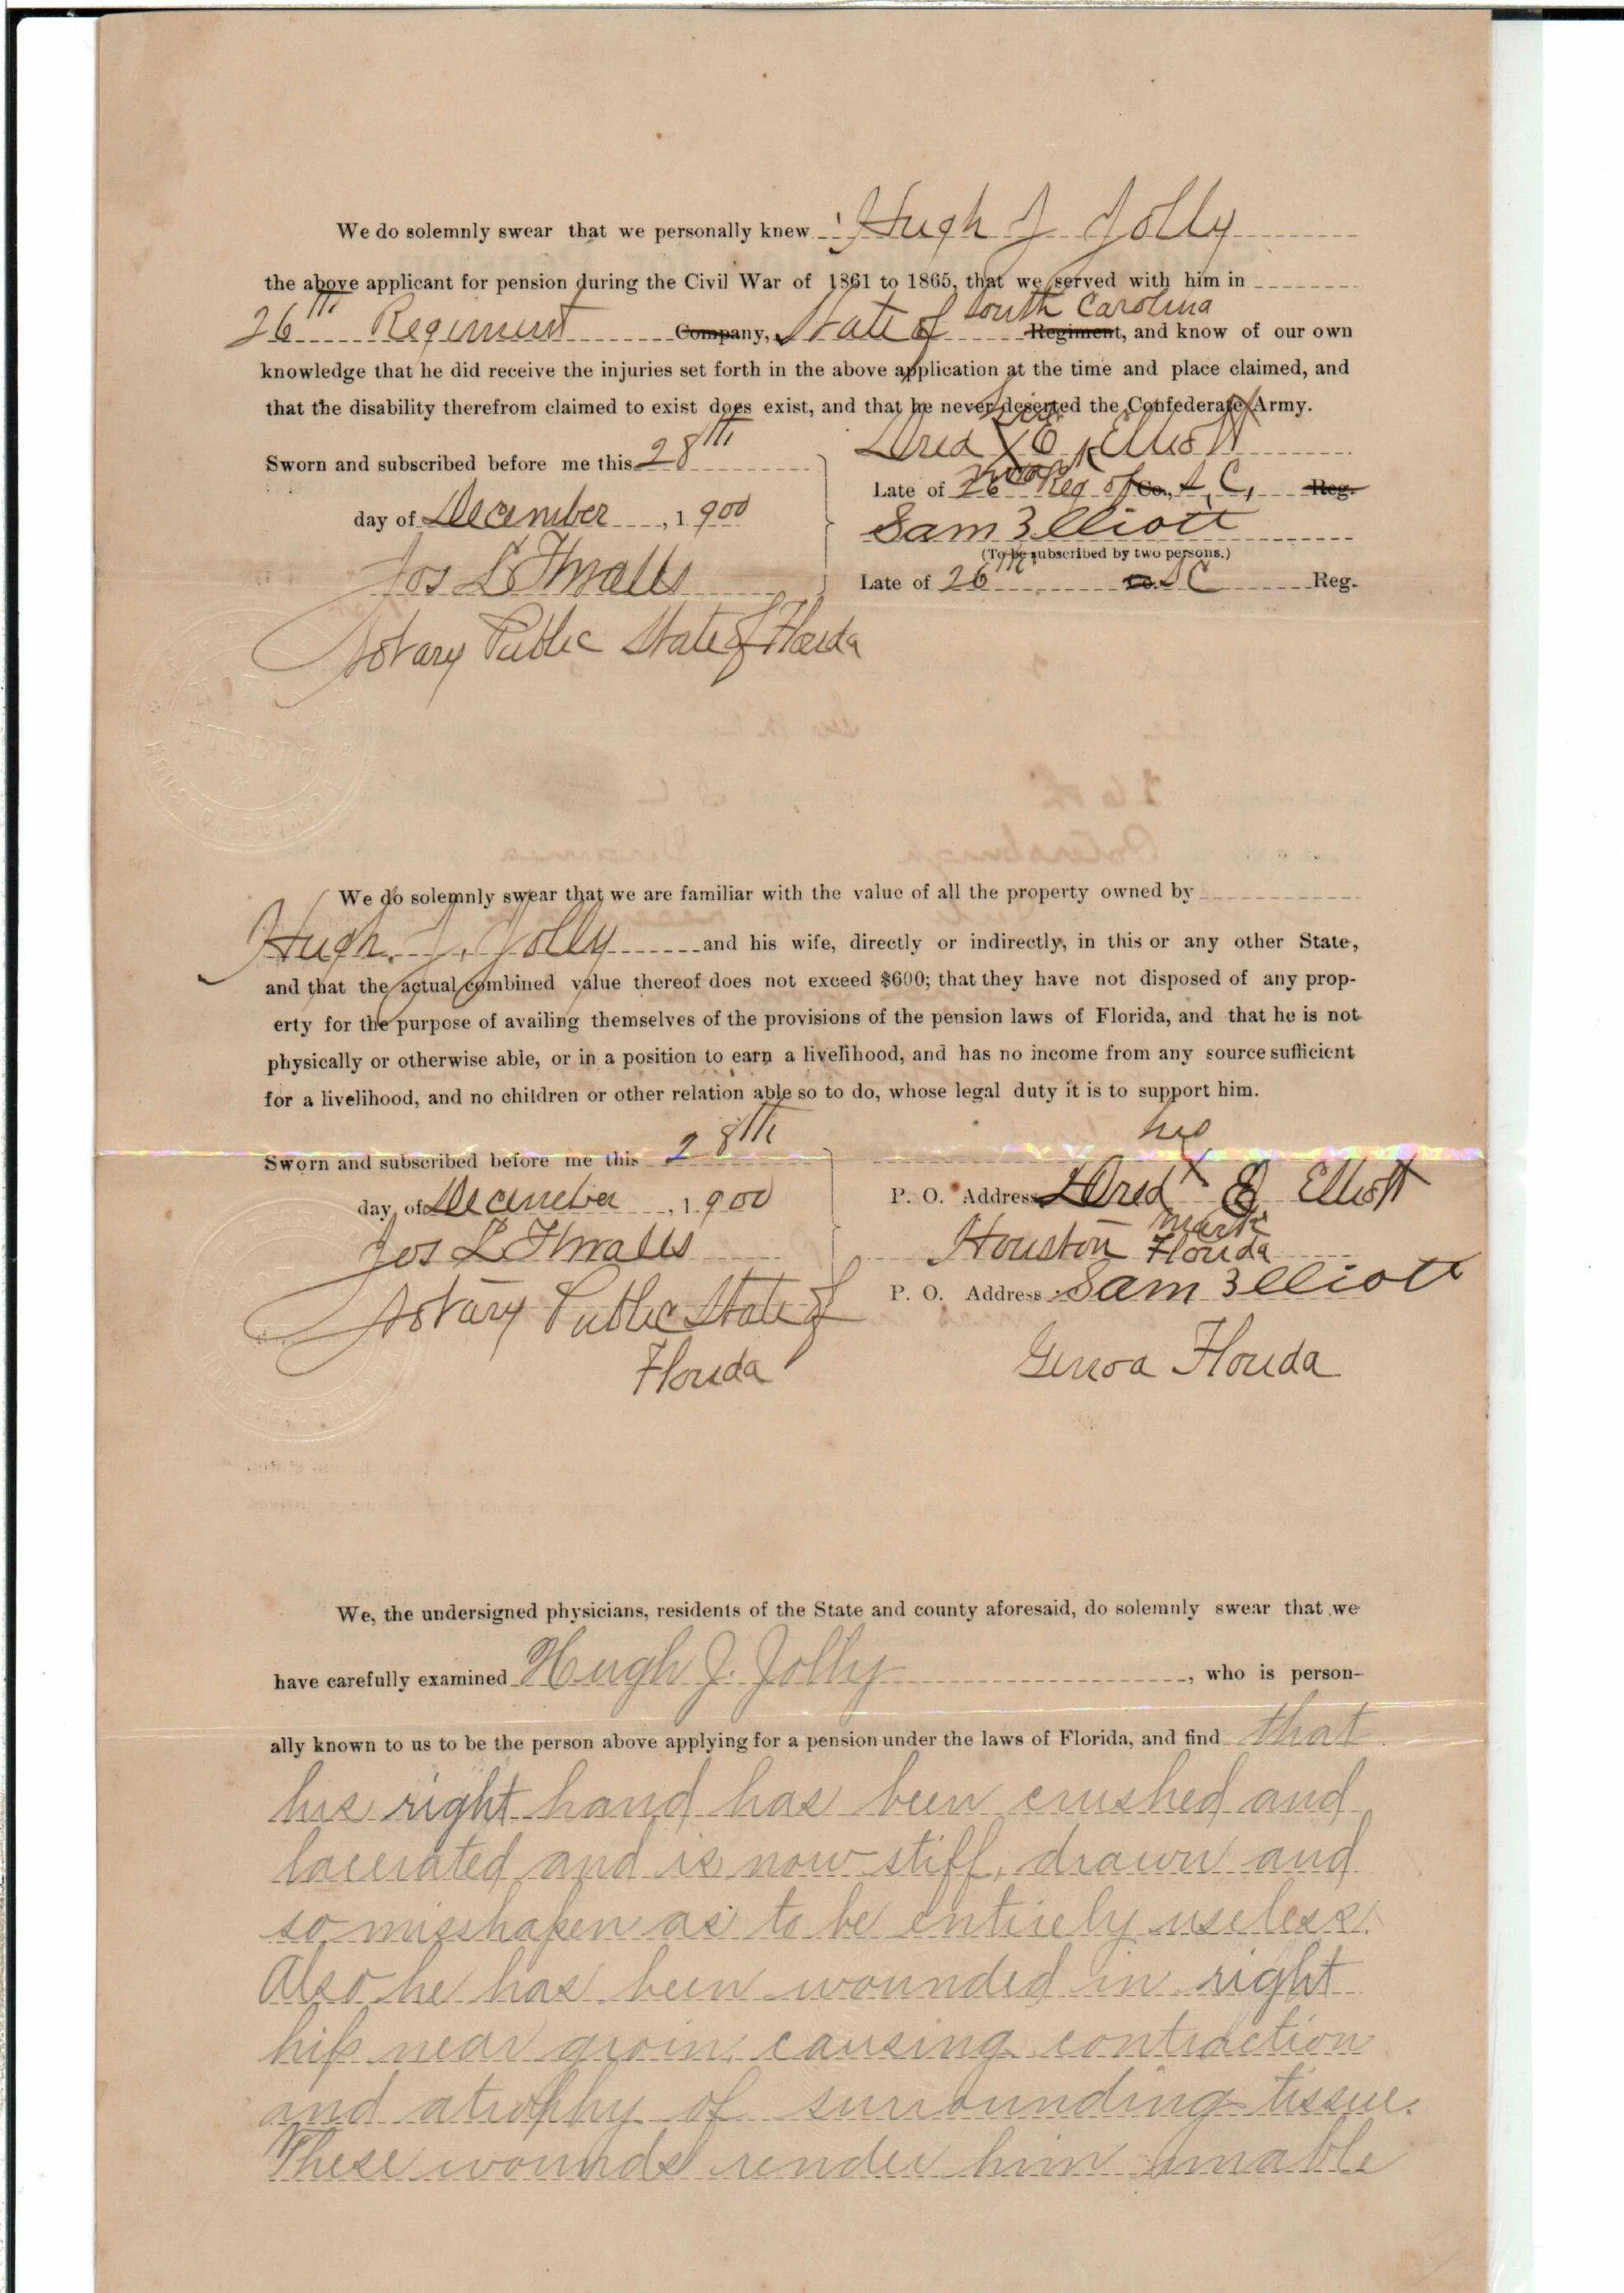 We do solemnly swear that we personally knew Hugh J Jolly
the above applicant for pension during the Civil War of 1861 to 1865, that we served with him in
26th Regiment Company, State of South Carolina Regiment, and know of our own
knowledge that he did receive the injuries set forth in the above application at the time and place claimed, and
that the disability therefrom claimed to exist does exist, and that he never deserted the Confederate Army.
his
Sworn and subscribed before me this 28th
Dred X E Elliott
mark
Late of 26th Reg of Co., S, C, Reg.
day of December, 1900
Sam Elliott
(To be subscribed by two persons.)
Jos L Thralls
Late of 26th Co. S C Reg.
Notary Public State of Florida
We do solemnly swear that we are familiar with the value of all the property owned by
Hugh. J. Jolly and his wife, directly or indirectly, in this or any other State,
and that the actual combined value thereof does not exceed $600; that they have not disposed of any prop-
erty for the purpose of availing themselves of the provisions of the pension laws of Florida, and that he is not
physically or otherwise able, or in a position to earn a livelihood, and has no income from any source sufficient
for a livelihood, and no children or other relation able so to do, whose legal duty it is to support him.
Sworn and subscribed before me this 28th
his
day of December, 1900
P. O. Address Dred X E Elliott
mark
Jos L Thralls
Houston Florida
Notary Public State of
Florida
P. O. Address Sam Elliott
Genoa Florida
We, the undersigned physicians, residents of the State and county aforesaid, do solemnly swear that we
have carefully examined Hugh J. Jolly, who is person-
ally known to us to be the person above applying for a pension under the laws of Florida, and find that
his right hand has been crushed and
lacerated and is now stiff, drawn and
so misshapen as to be entirely useless.
Also he has been wounded in right
hip near groin, causing contraction
and atrophy of surrounding tissue.
These wounds render him unable